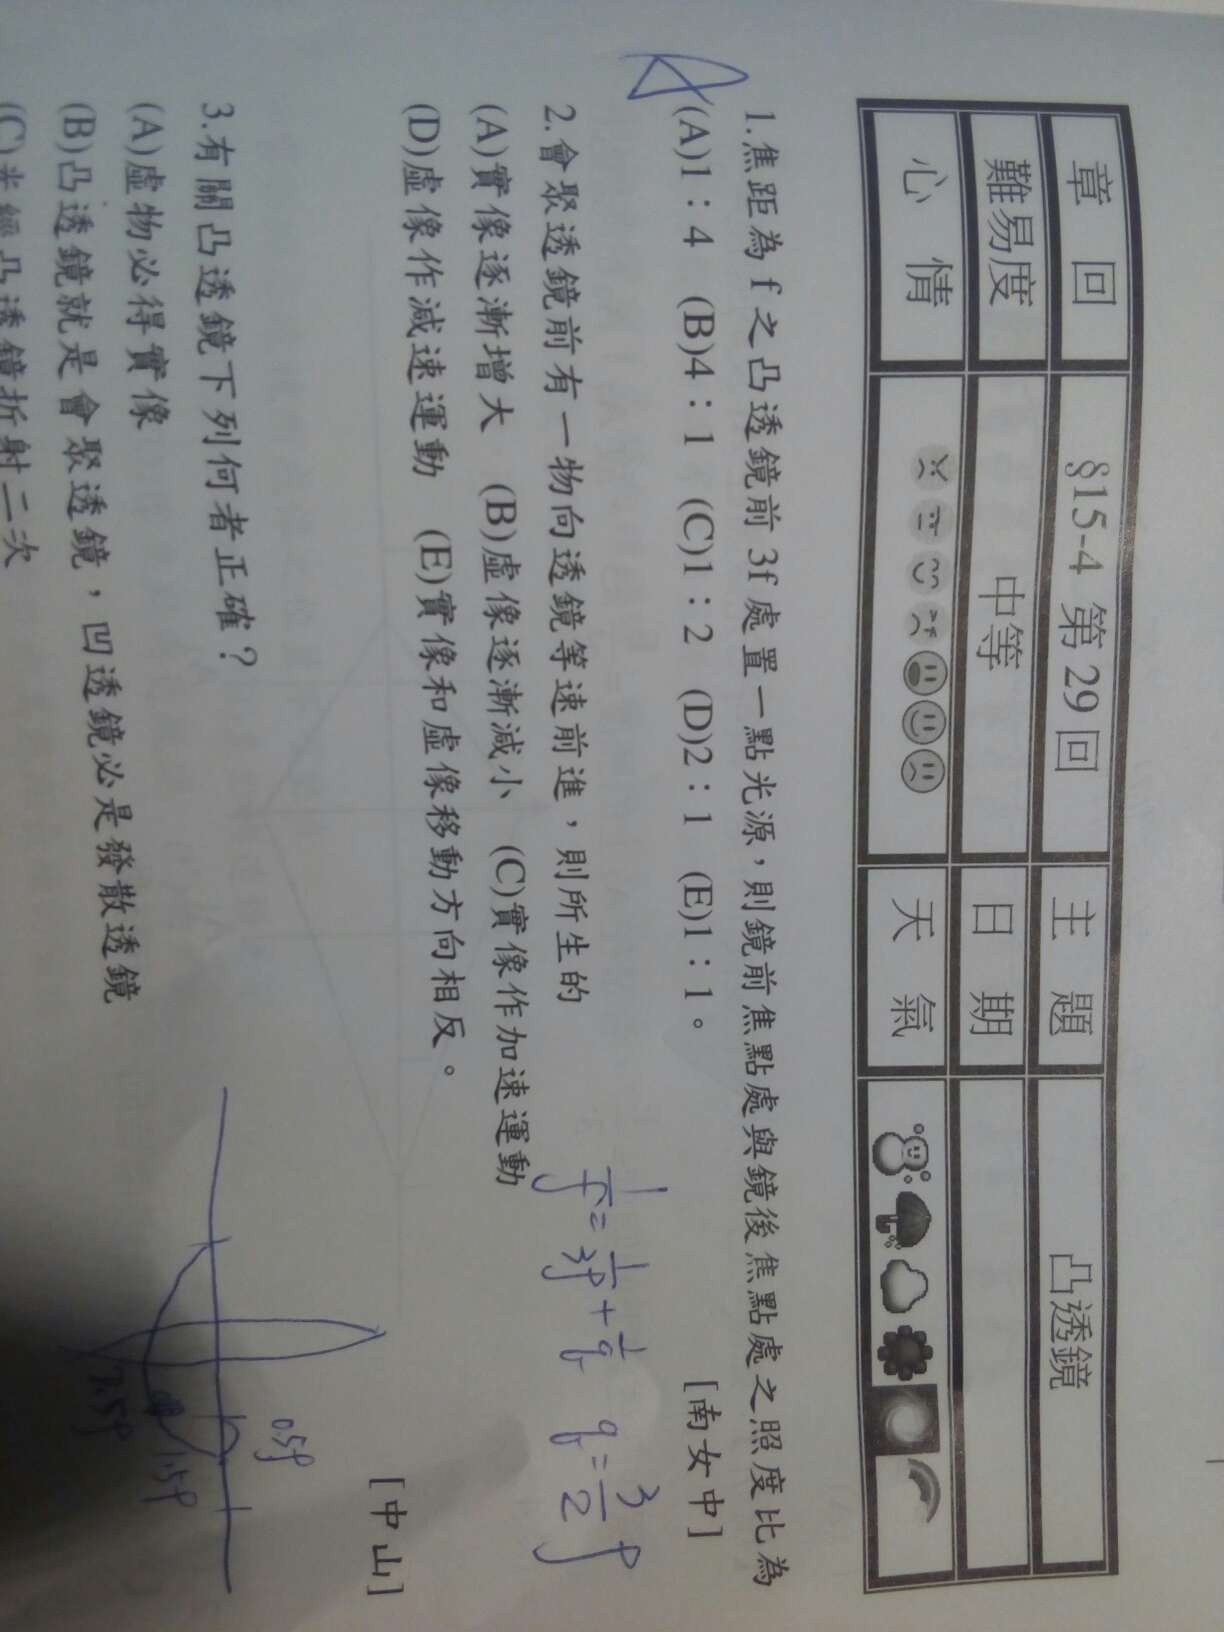 章 回 §15-4 第 29 回 主 題 凸透鏡
難易度 中等 日 期
心 情 天 氣
1.焦距為 f 之凸透鏡前 3f 處置一點光源，則鏡前焦點處與鏡後焦點處之照度比為
(A)1：4 (B)4：1 (C)1：2 (D)2：1 (E)1：1。 [南女中]
2.會聚透鏡前有一物向透鏡等速前進，則所生的
(A)實像逐漸增大 (B)虛像逐漸減小 (C)實像作加速運動
(D)虛像作減速運動 (E)實像和虛像移動方向相反。
1/f = 1/3f + 1/q q = 3/2 f
[中山]
3.有關凸透鏡下列何者正確？
(A)虛物必得實像
(B)凸透鏡就是會聚透鏡，凹透鏡必是發散透鏡
(C)光經凸透鏡折射二次
0.5f
1.5f